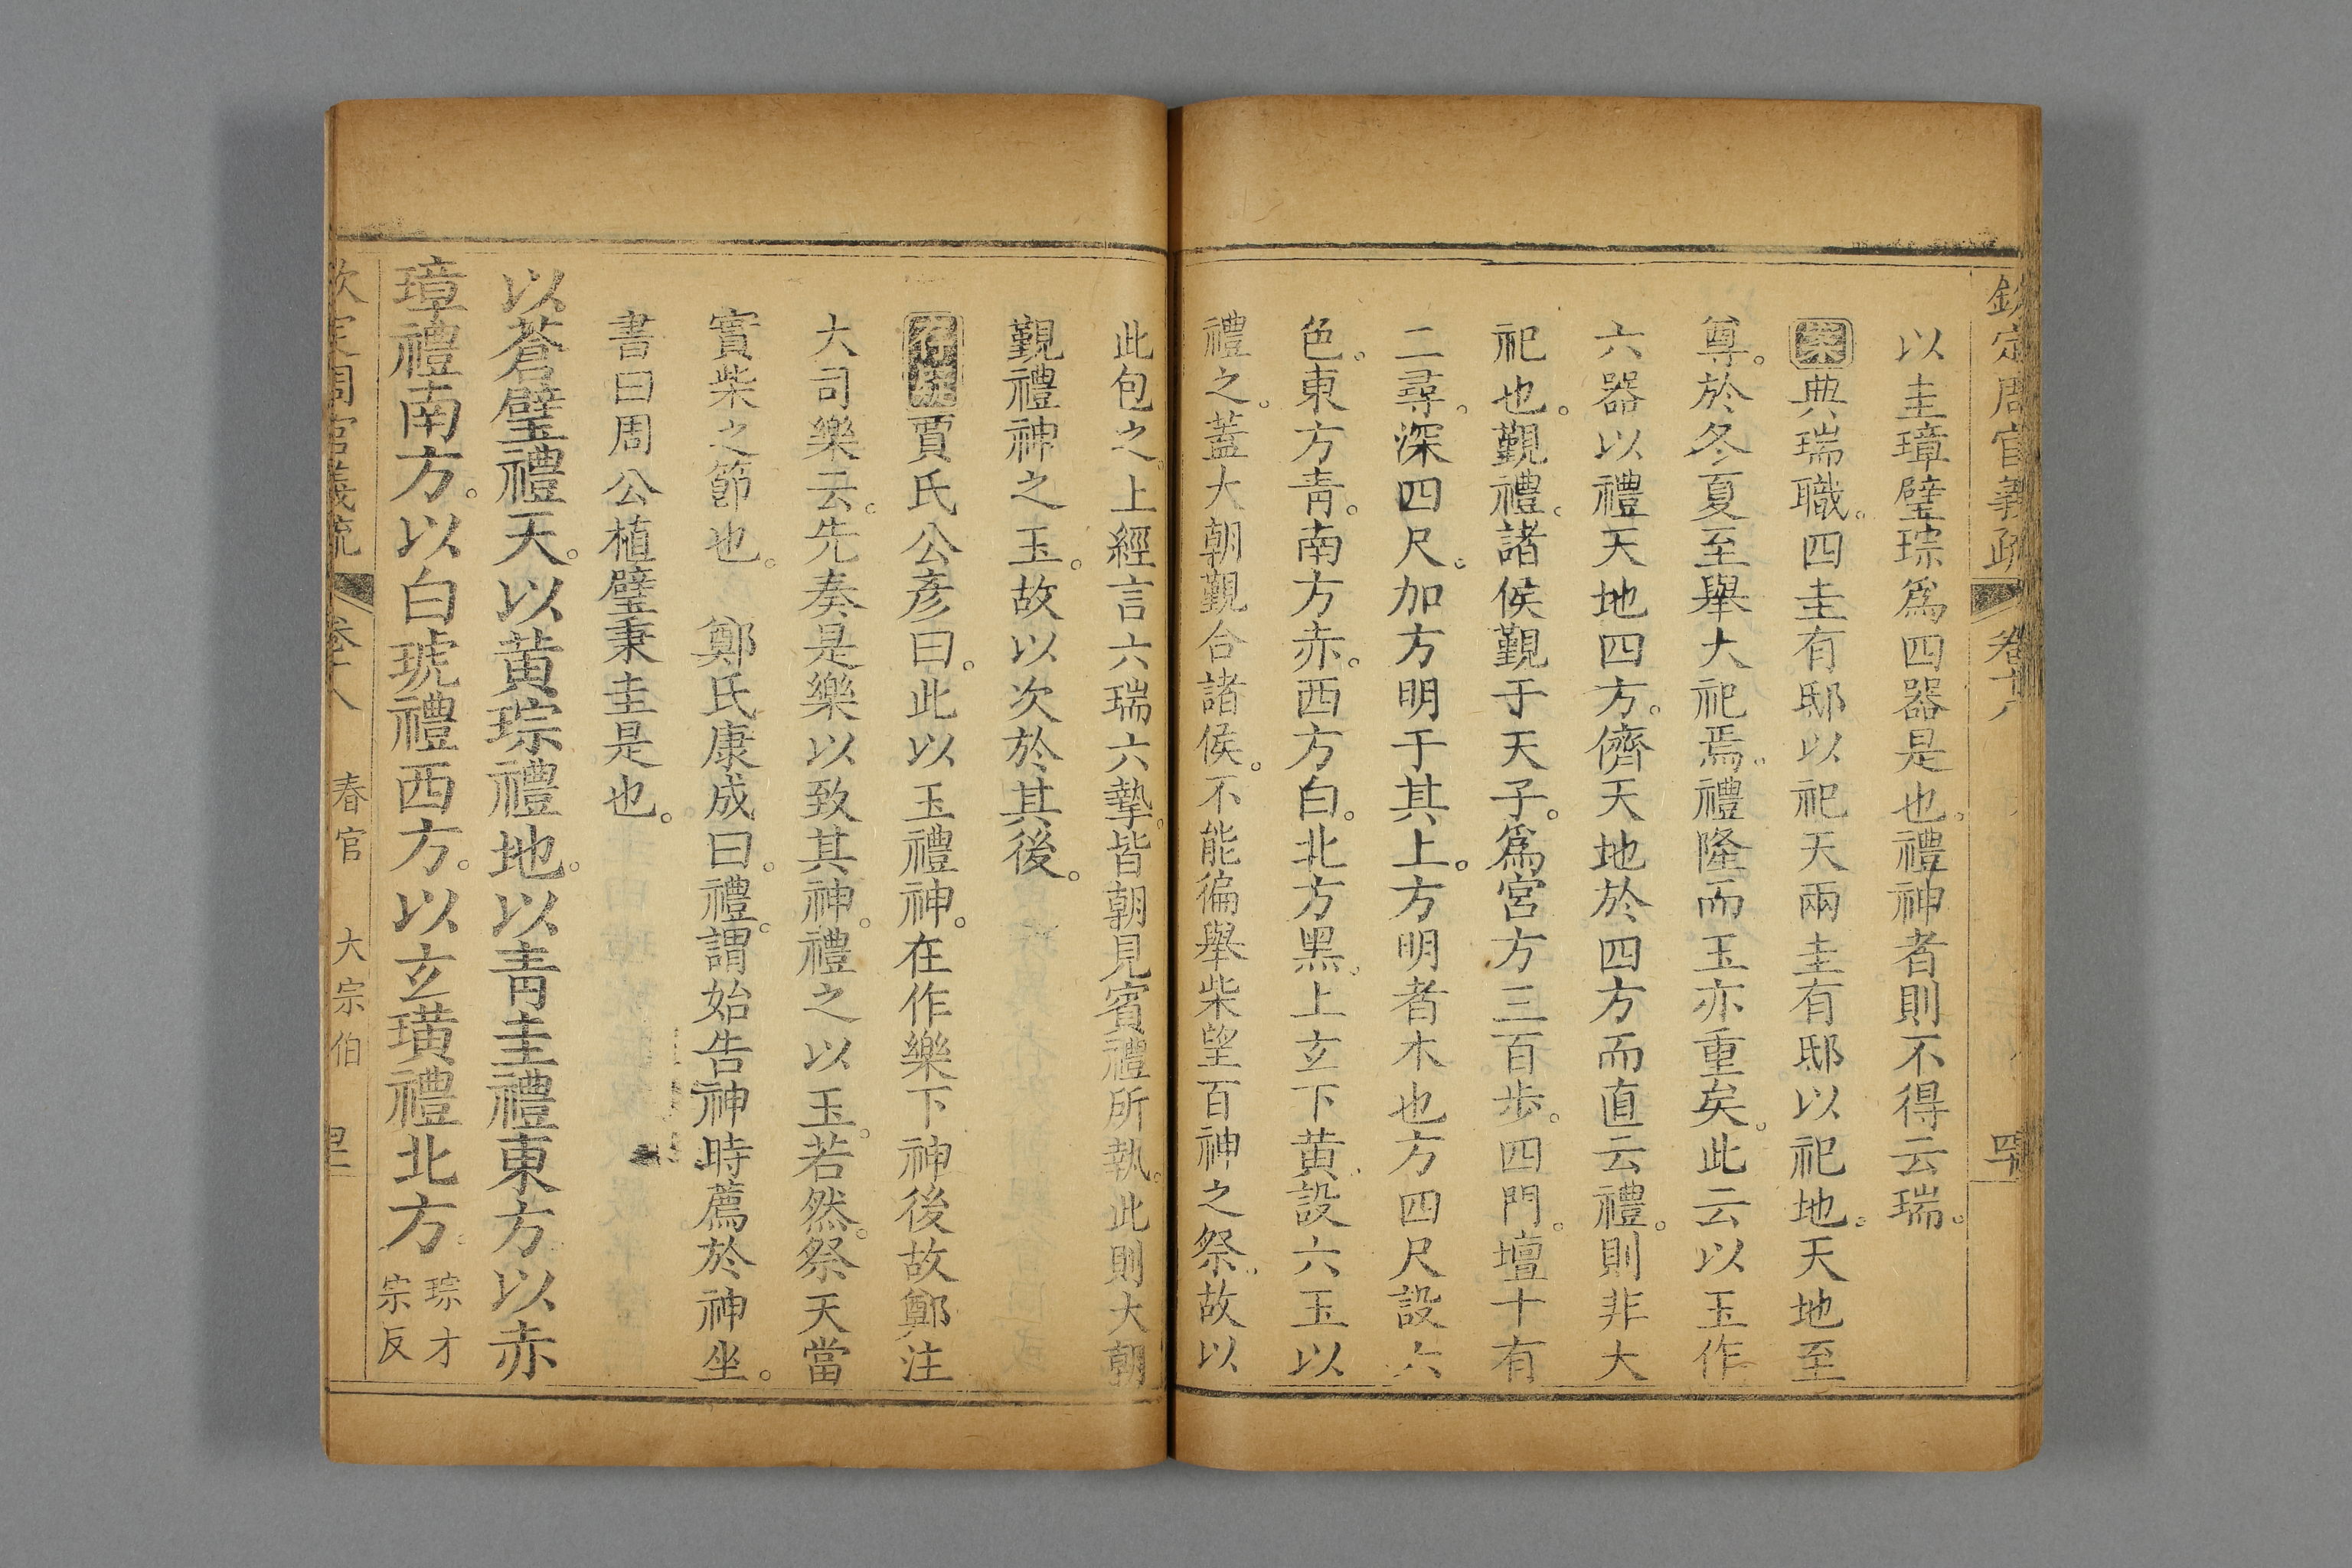 欽定周官義疏 卷十八
以圭璋璧琮為四器是也。禮神者則不得云瑞。
案典瑞職。四圭有邸以祀天兩圭有邸以祀地。天地至
尊。於冬夏至舉大祀焉。禮隆而玉亦重矣。此云以玉作
六器以禮天地四方。儕天地於四方而直云禮。則非大
祀也。覲禮。諸侯覲于天子。為宮方三百步。四門。壇十有
二尋。深四尺。加方明于其上。方明者木也方四尺設六
色。東方青。南方赤。西方白。北方黑。上玄下黃。設六玉以
禮之。蓋大朝覲合諸侯。不能徧舉柴望百神之祭。故以
此包之。上經言六瑞六摯。皆朝見賓禮所執。此則大朝
覲禮神之玉。故以次於其後。
賈氏公彥曰。此以玉禮神。在作樂下神後故鄭注
大司樂云。先奏是樂以致其神。禮之以玉。若然。祭天當
實柴之節也。 鄭氏康成曰。禮。謂始告神時薦於神坐。
書曰周公植璧秉圭是也。
以蒼璧禮天。以黃琮禮地。以青圭禮東方以赤
璋禮南方。以白琥禮西方。以玄璜禮北方。琮才
宗反
欽定周官義疏 卷十八 春官 大宗伯